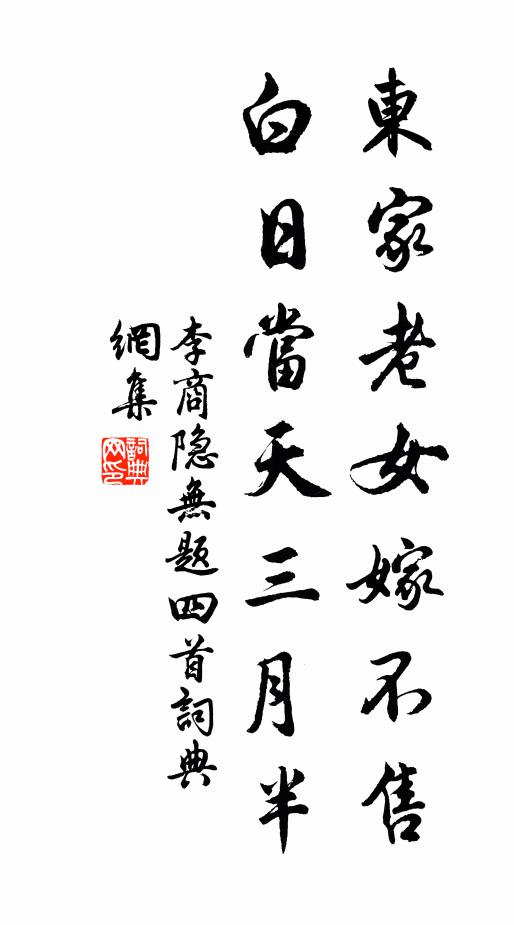 東家老女嫁不售
白日當天三月半
李商隐無題四首詞典
網集
詞典网印